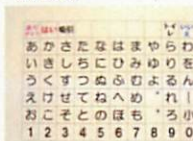 はい 吸引 トイレ
あ か さ た な は ま や ら わ
い き し ち に ひ み ゆ り を
う く す つ ぬ ふ む よ る ん
え け せ て ね へ め ゛ れ ー
お こ そ と の ほ も ゜ ろ 小
1 2 3 4 5 6 7 8 9 0